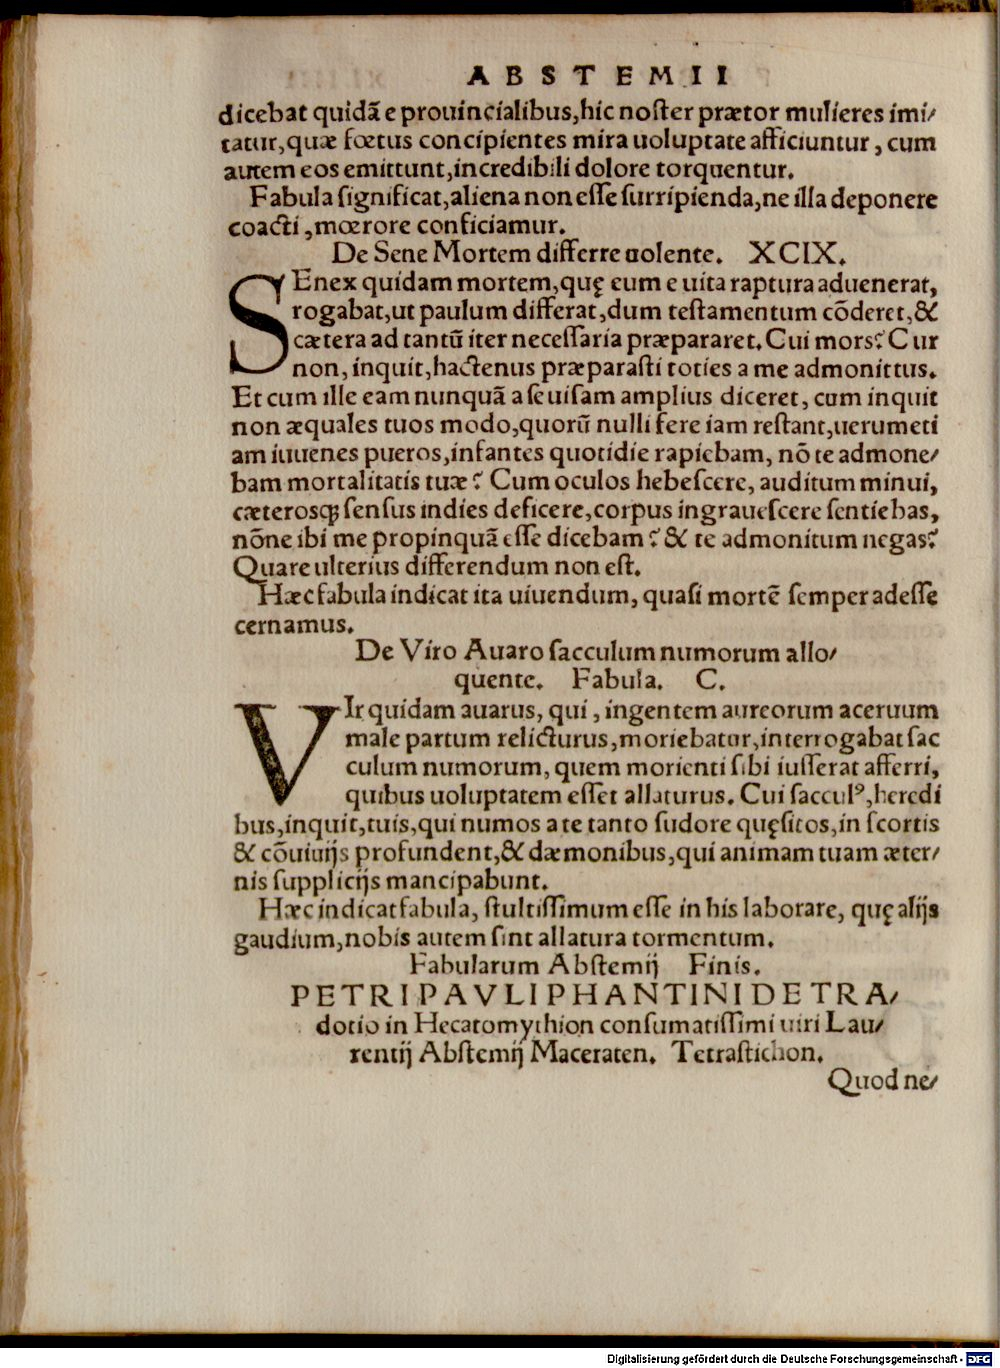 ABSTEMII
dicebat quidã e prouincialibus, hic noster prætor mulieres imi/
tatur, quæ fœtus concipientes mira uoluptate afficiuntur, cum
autem eos emittunt, incredibili dolore torquentur.
Fabula significat, aliena non esse surripienda, ne illa deponere
coacti, mœrore conficiamur.
De Sene Mortem differre uolente. XCIX.
SEnex quidam mortem, quę eum e uita raptura aduenerat,
rogabat, ut paulum differat, dum testamentum cõderet, &
cætera ad tantũ iter necessaria præpararet. Cui mors? Cur
non, inquit, hactenus præparasti toties a me admonittus.
Et cum ille eam nunquã a se uisam amplius diceret, cum inquit
non æquales tuos modo, quorũ nulli fere iam restant, uerumeti
am iuuenes pueros, infantes quotidie rapiebam, nõ te admone/
bam mortalitatis tuæ? Cum oculos hebescere, auditum minui,
cæterosq; sensus indies deficere, corpus ingrauescere sentiebas,
nõne ibi me propinquã esse dicebam? & te admonitum negas?
Quare ulterius differendum non est.
Hæc fabula indicat ita uiuendum, quasi mortẽ semper adesse
cernamus.
De Viro Auaro sacculum numorum allo/
quente. Fabula. C.
VIr quidam auarus, qui, ingentem aureorum aceruum
male partum relicturus, moriebatur, interrogabat sac
culum numorum, quem morienti sibi iusserat afferri,
quibus uoluptatem esset allaturus. Cui saccul⁹, heredi
bus, inquit, tuis, qui numos a te tanto sudore quęsitos, in scortis
& cõuiuijs profundent, & dæmonibus, qui animam tuam æter/
nis supplicijs mancipabunt.
Hæc indicat fabula, stultissimum esse in his laborare, quę alijs
gaudium, nobis autem sint allatura tormentum.
Fabularum Abstemij Finis.
PETRI PAVLI PHANTINI DE TRA/
dotio in Hecatomythion consumatissimi uiri Lau/
rentij Abstemij Maceraten. Tetrastichon.
Quod ne/
Digitalisierung gefördert durch die Deutsche Forschungsgemeinschaft - DFG